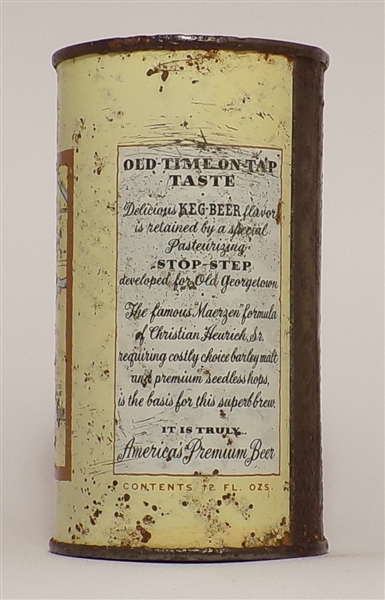 OLD-TIME ON-TAP
TASTE
Delicious KEG-BEER flavor
is retained by a special
Pasteurizing
STOP-STEP
developed for Old Georgetown
The famous "Maerzen" formula
of Christian Heurich, Sr.
requiring costly choice barley malt
and premium seedless hops,
is the basis for this superb brew.
IT IS TRULY...
America's Premium Beer
CONTENTS 12 FL. OZS.